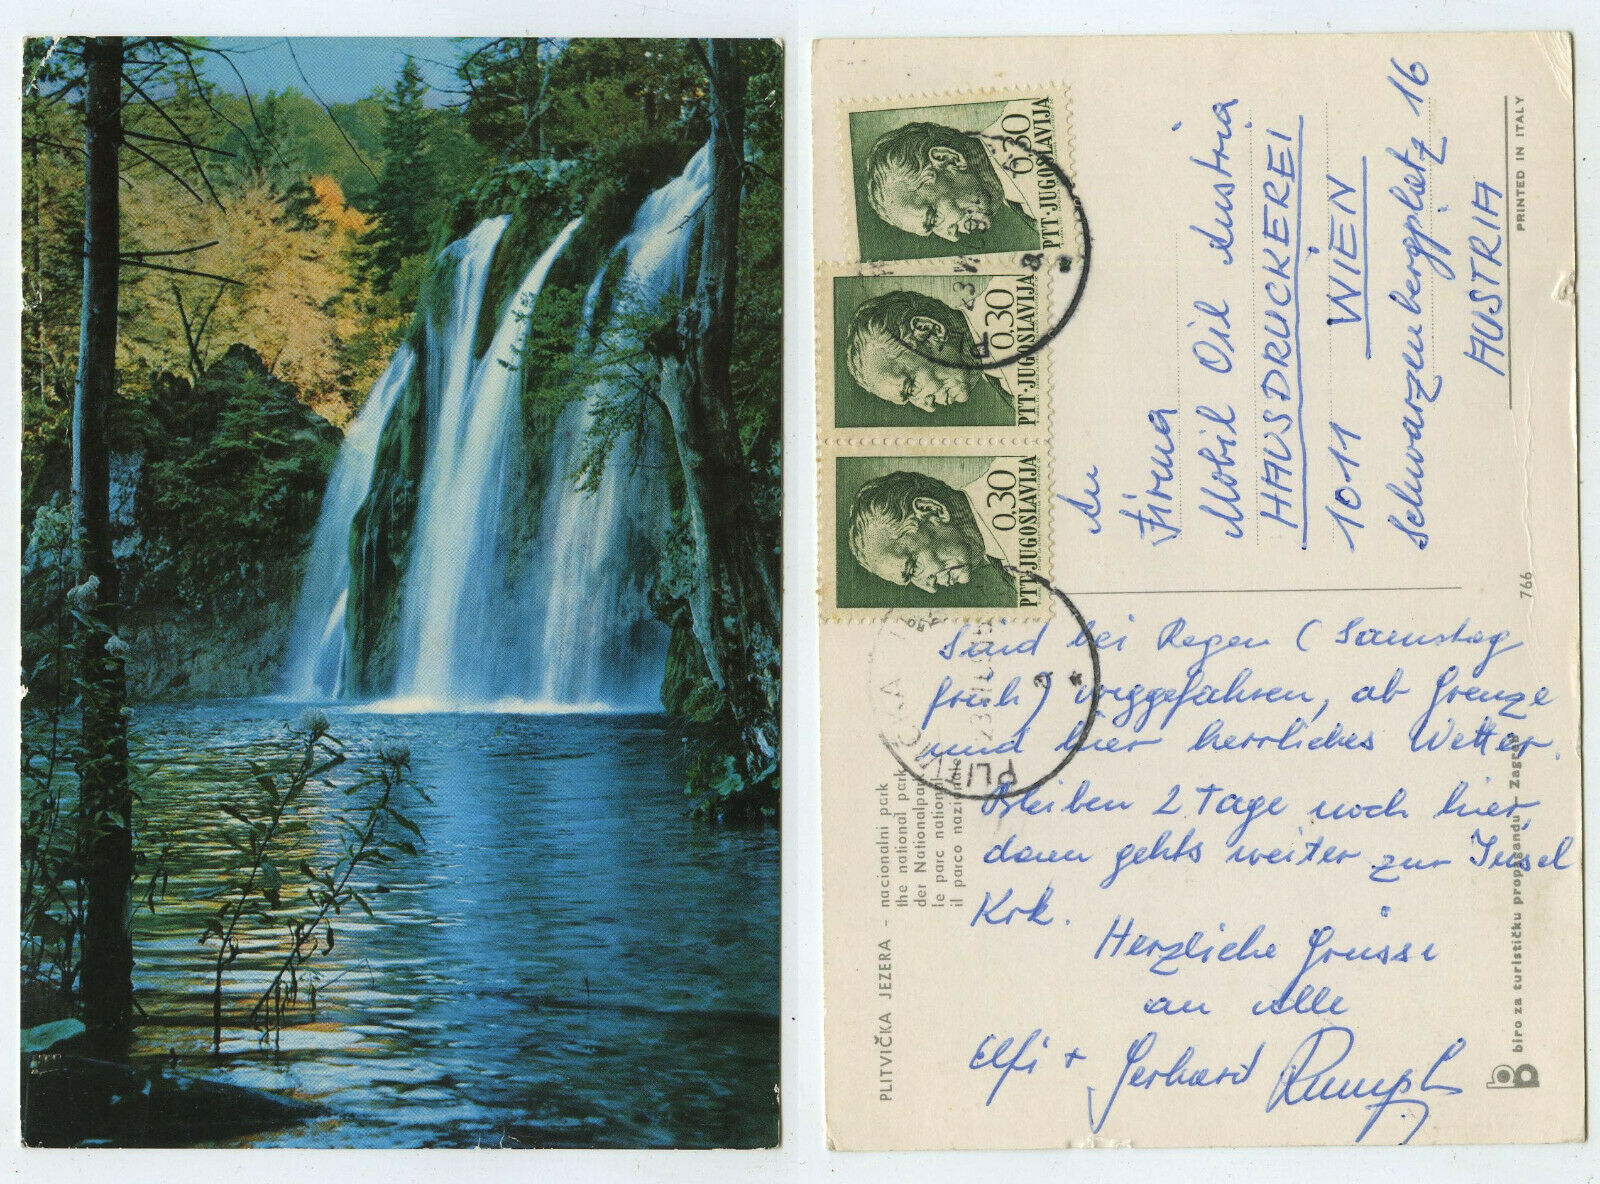 0.30
PTT·JUGOSLAVIJA
0.30
PTT·JUGOSLAVIJA
0.30
PTT·JUGOSLAVIJA
An
Firma
Mobil Oil Austria
HAUSDRUCKEREI
1011 WIEN
Schwarzenbergplatz 16
AUSTRIA
PRINTED IN ITALY
766
Sind bei Regen (Samstag
früh) weggefahren, ab Grenze
und hier herrliches Wetter.
Bleiben 2 Tage noch hier,
dann gehts weiter zur Insel
Krk.
Herzliche Grüsse
an Alle
Elfi + Gerhard
PLITVIČKA JEZERA - nacionalni park
the national park
der Nationalpark
le parc national
il parco nazionale
biro za turističku propagandu - Zagreb